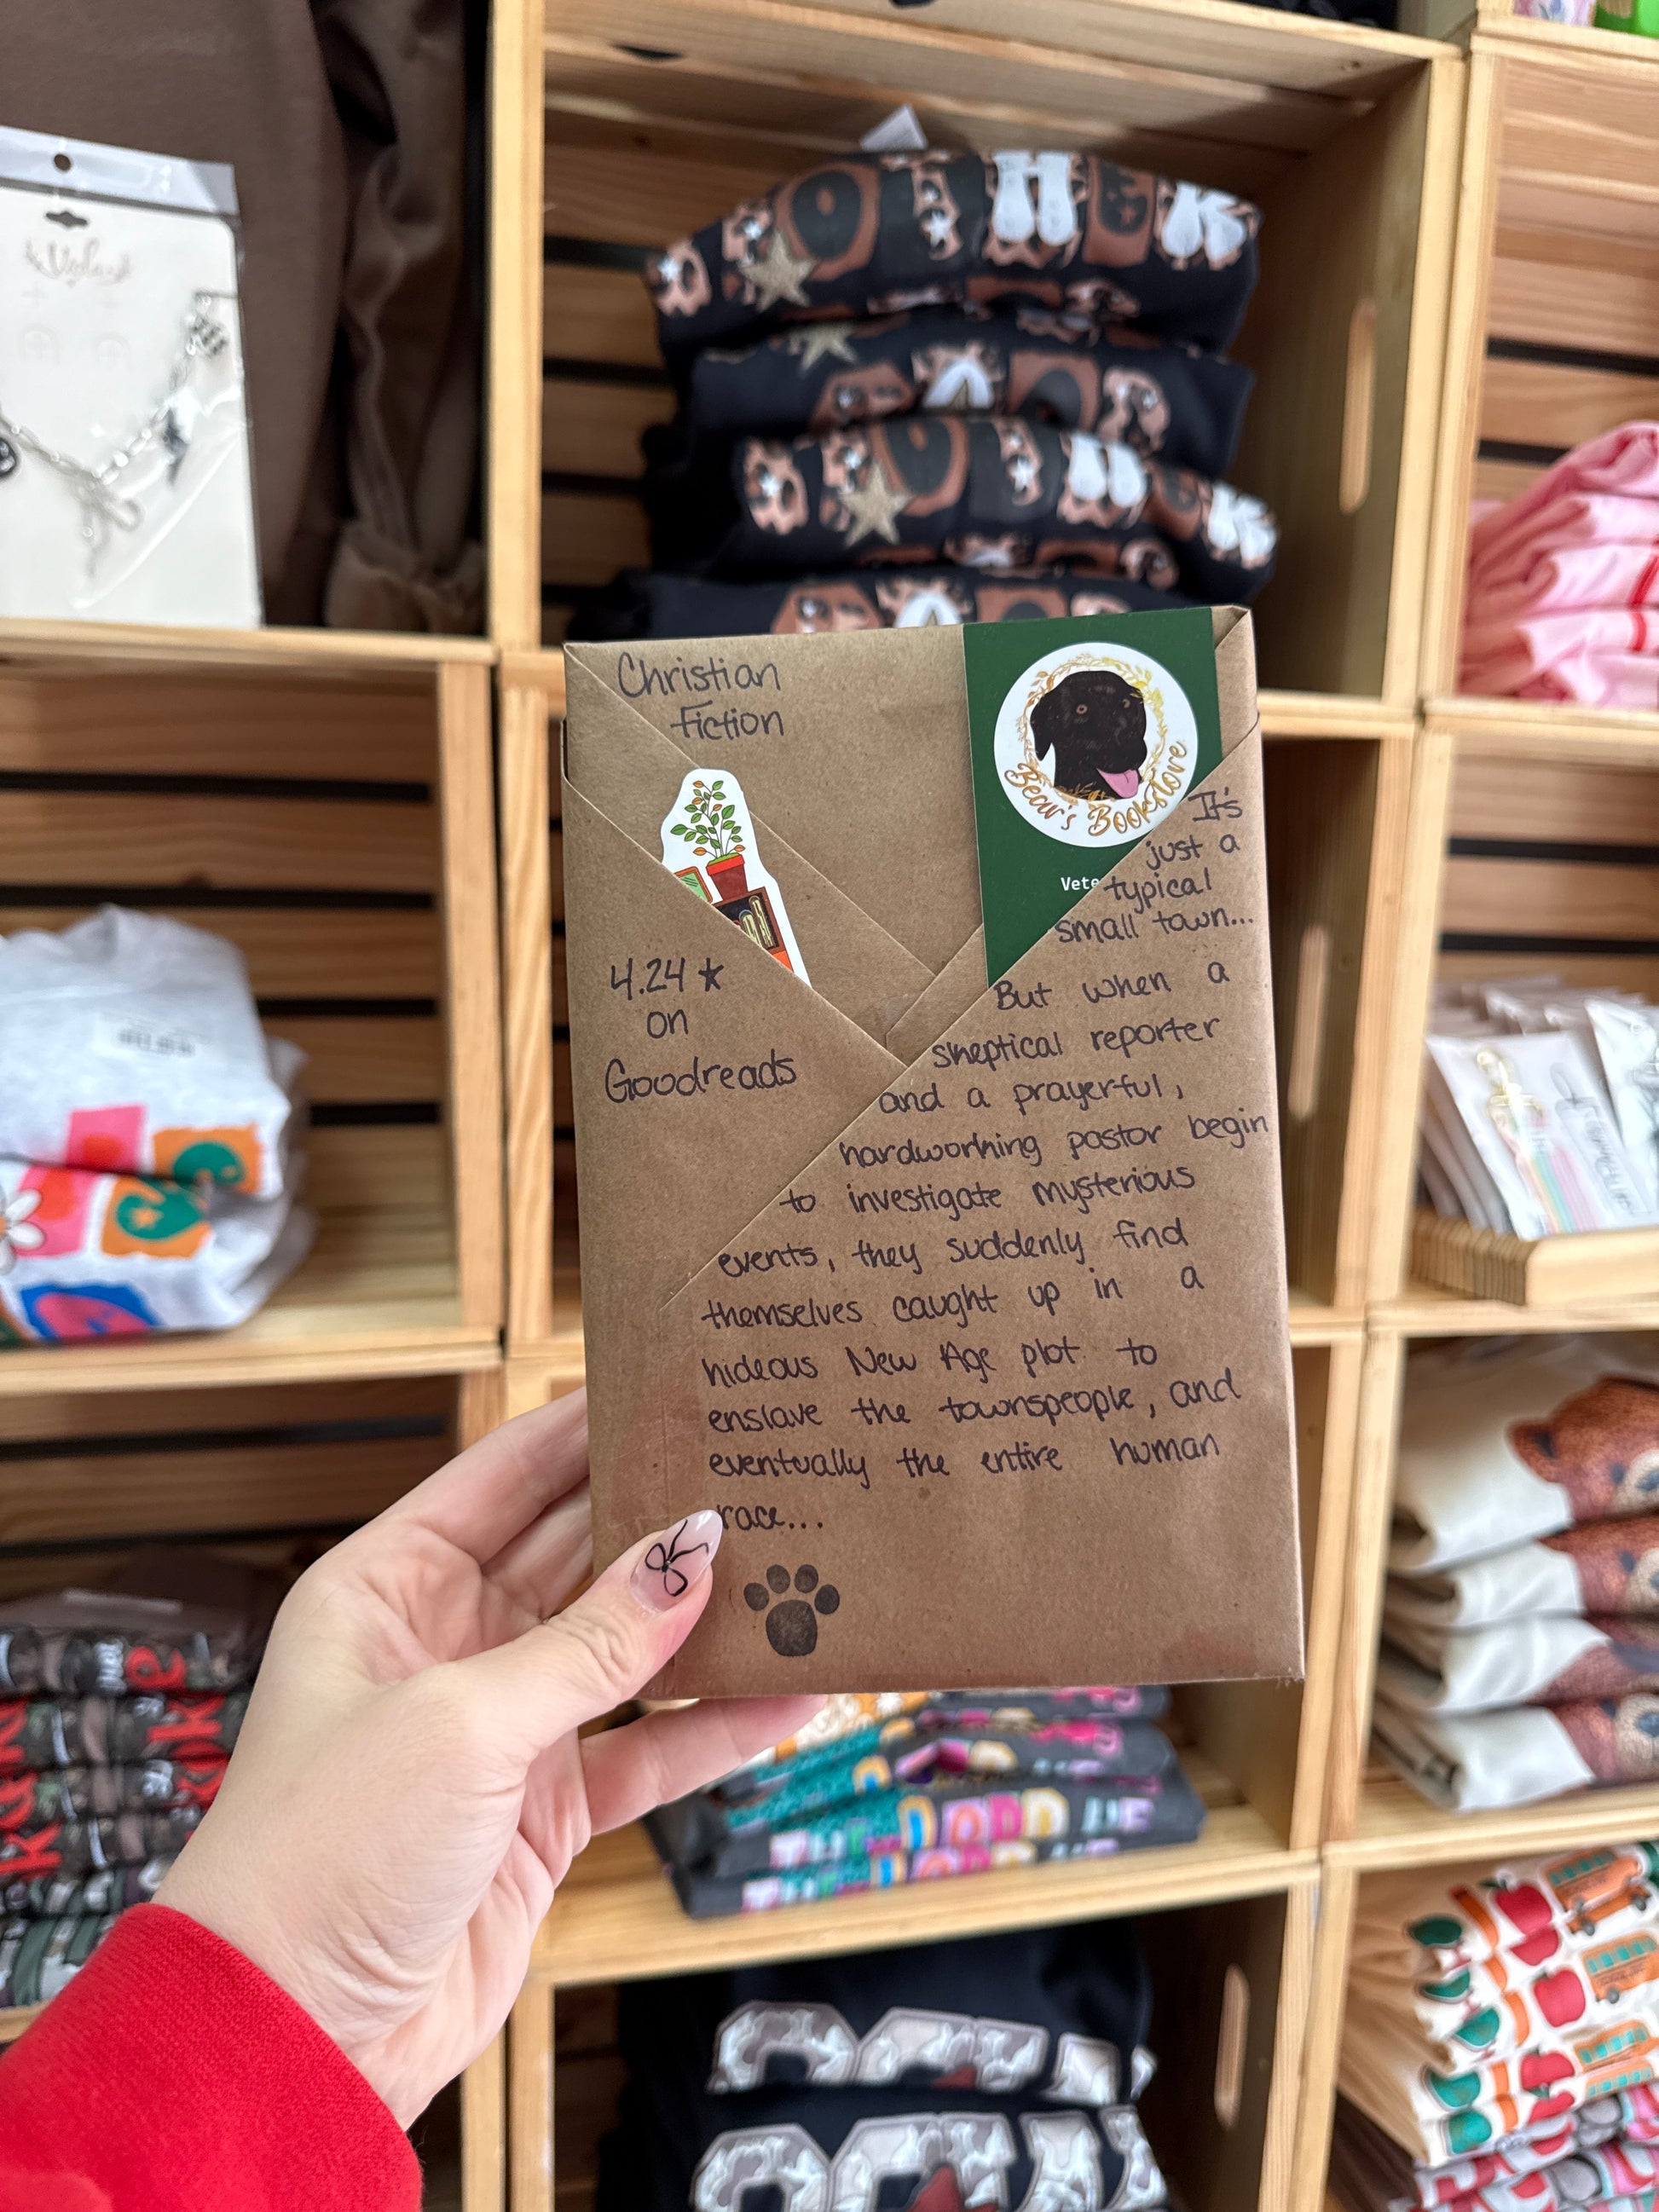 Christian
Fiction
Bear's Bookstore
It's
just a
typical
small town...
4.24 ★
on
Goodreads
But when a
skeptical reporter
and a prayerful,
hardworking pastor begin
to investigate mysterious
events, they suddenly find
themselves caught up in a
hideous New Age plot to
enslave the townspeople, and
eventually the entire human
race...